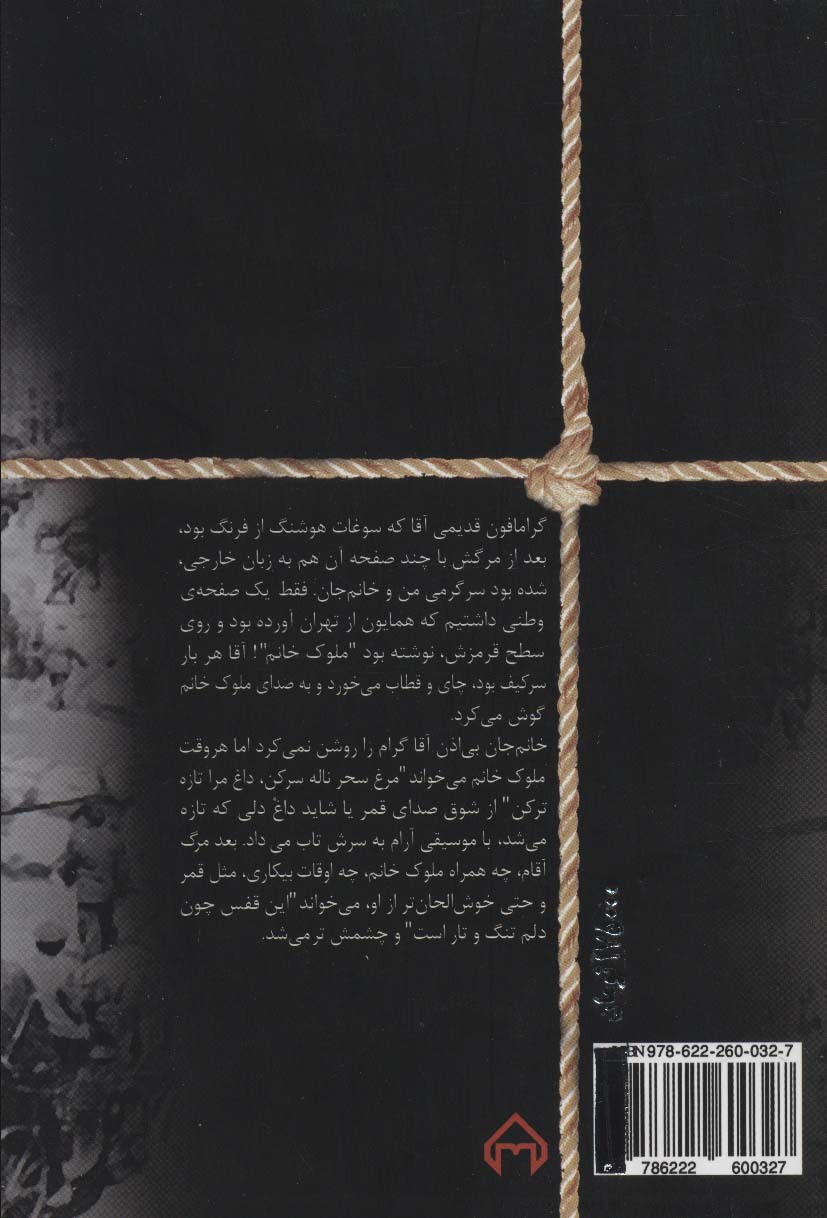 گرامافون قدیمی آقا که سوغات هوشنگ از فرنگ بود،
بعد از مرگش با چند صفحه آن هم به زبان خارجی،
شده بود سرگرمی من و خانم‌جان. فقط یک صفحه‌ی
وطنی داشتیم که همایون از تهران آورده بود و روی
سطح قرمزش، نوشته بود "ملوک خانم"! آقا هر بار
سرکیف بود، چای و قطاب می‌خورد و به صدای ملوک خانم
گوش می‌کرد.
خانم‌جان بی‌اذن آقا گرام را روشن نمی‌کرد اما هروقت
ملوک خانم می‌خواند"مرغ سحر ناله سرکن، داغ مرا تازه
ترکن" از شوق صدای قمر یا شاید داغ دلی که تازه
می‌شد، با موسیقی آرام به سرش تاب می داد. بعد مرگ
آقام، چه همراه ملوک خانم، چه اوقات بیکاری، مثل قمر
و حتی خوش‌الحان‌تر از او، می‌خواند"این قفس چون
دلم تنگ و تار است" و چشمش تر می‌شد.
تومان
N 978-622-260-032-7
786222 600327